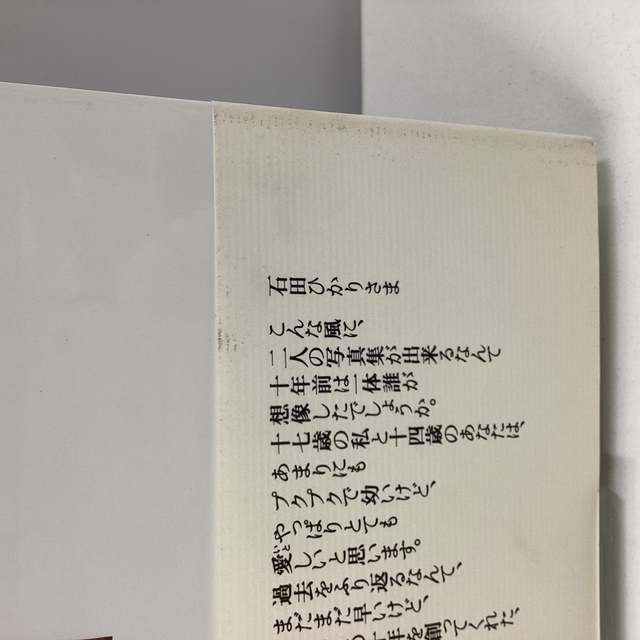 石田ひかりさま
こんな風に、
二人の写真集が出来るなんて
十年前は一体誰が
想像したでしょうか。
十七歳の私と十四歳のあなたは、
あまりにも
プクプクで幼いけど、
やっぱりとても
愛しいと思います。
過去をふり返るなんて、
まだまだ早いけど、
十年を創ってくれた、